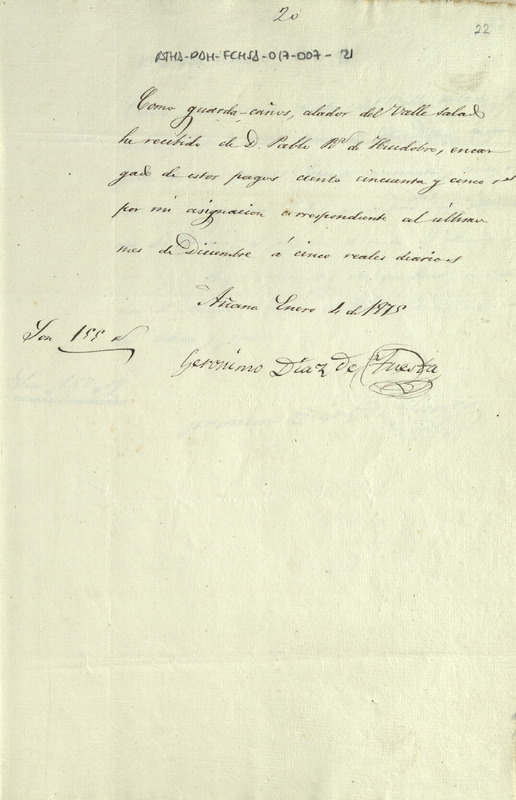 20
22
ATHA-DAH-FCHSA-017-007-21
Como guarda-caños, alador del Valle salado
he recibido de D. Pablo Rz de Huidobro, encar
gado de estos pagos ciento cincuenta y cinco rs
por mi asignacion correspondiente al último
mes de Diciembre á cinco reales diarios
Añana Enero 4 de 1875
Son 155 rs
Geronimo Díaz de Tuesta